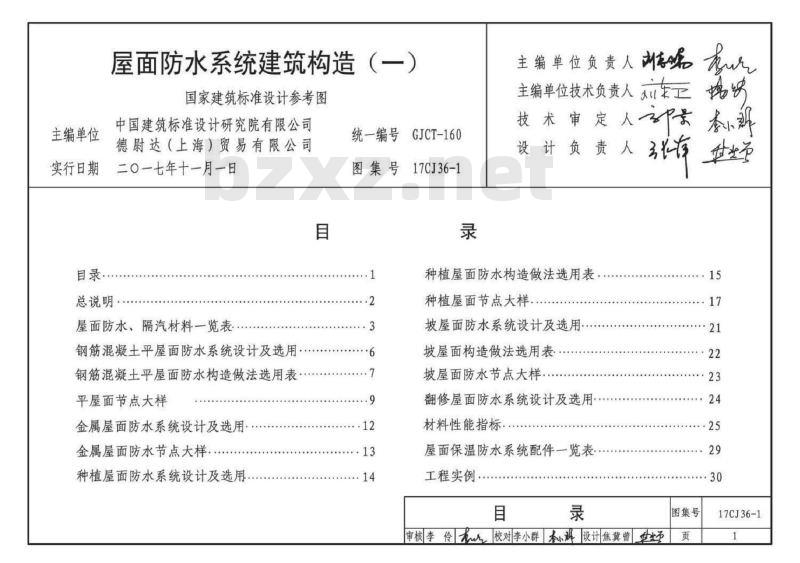 屋面防水系统建筑构造（一）
国家建筑标准设计参考图
主编单位 中国建筑标准设计研究院有限公司
德尉达（上海）贸易有限公司
统一编号 GJCT-160
实行日期 二〇一七年十一月一日
图集号 17CJ36-1
主编单位负责人
主编单位技术负责人
技术审定人
设计负责人
bzxz.net
目 录
目录 1
总说明 2
屋面防水、隔汽材料一览表 3
钢筋混凝土平屋面防水系统设计及选用 6
钢筋混凝土平屋面防水构造做法选用表 7
平屋面节点大样 9
金属屋面防水系统设计及选用 12
金属屋面防水节点大样 13
种植屋面防水系统设计及选用 14
种植屋面防水构造做法选用表 15
种植屋面节点大样 17
坡屋面防水系统设计及选用 21
坡屋面构造做法选用表 22
坡屋面防水节点大样 23
翻修屋面防水系统设计及选用 24
材料性能指标 25
屋面保温防水系统配件一览表 29
工程实例 30
目 录 图集号 17CJ36-1
审核 李伶 校对 李小群 设计 焦冀曾 页 1